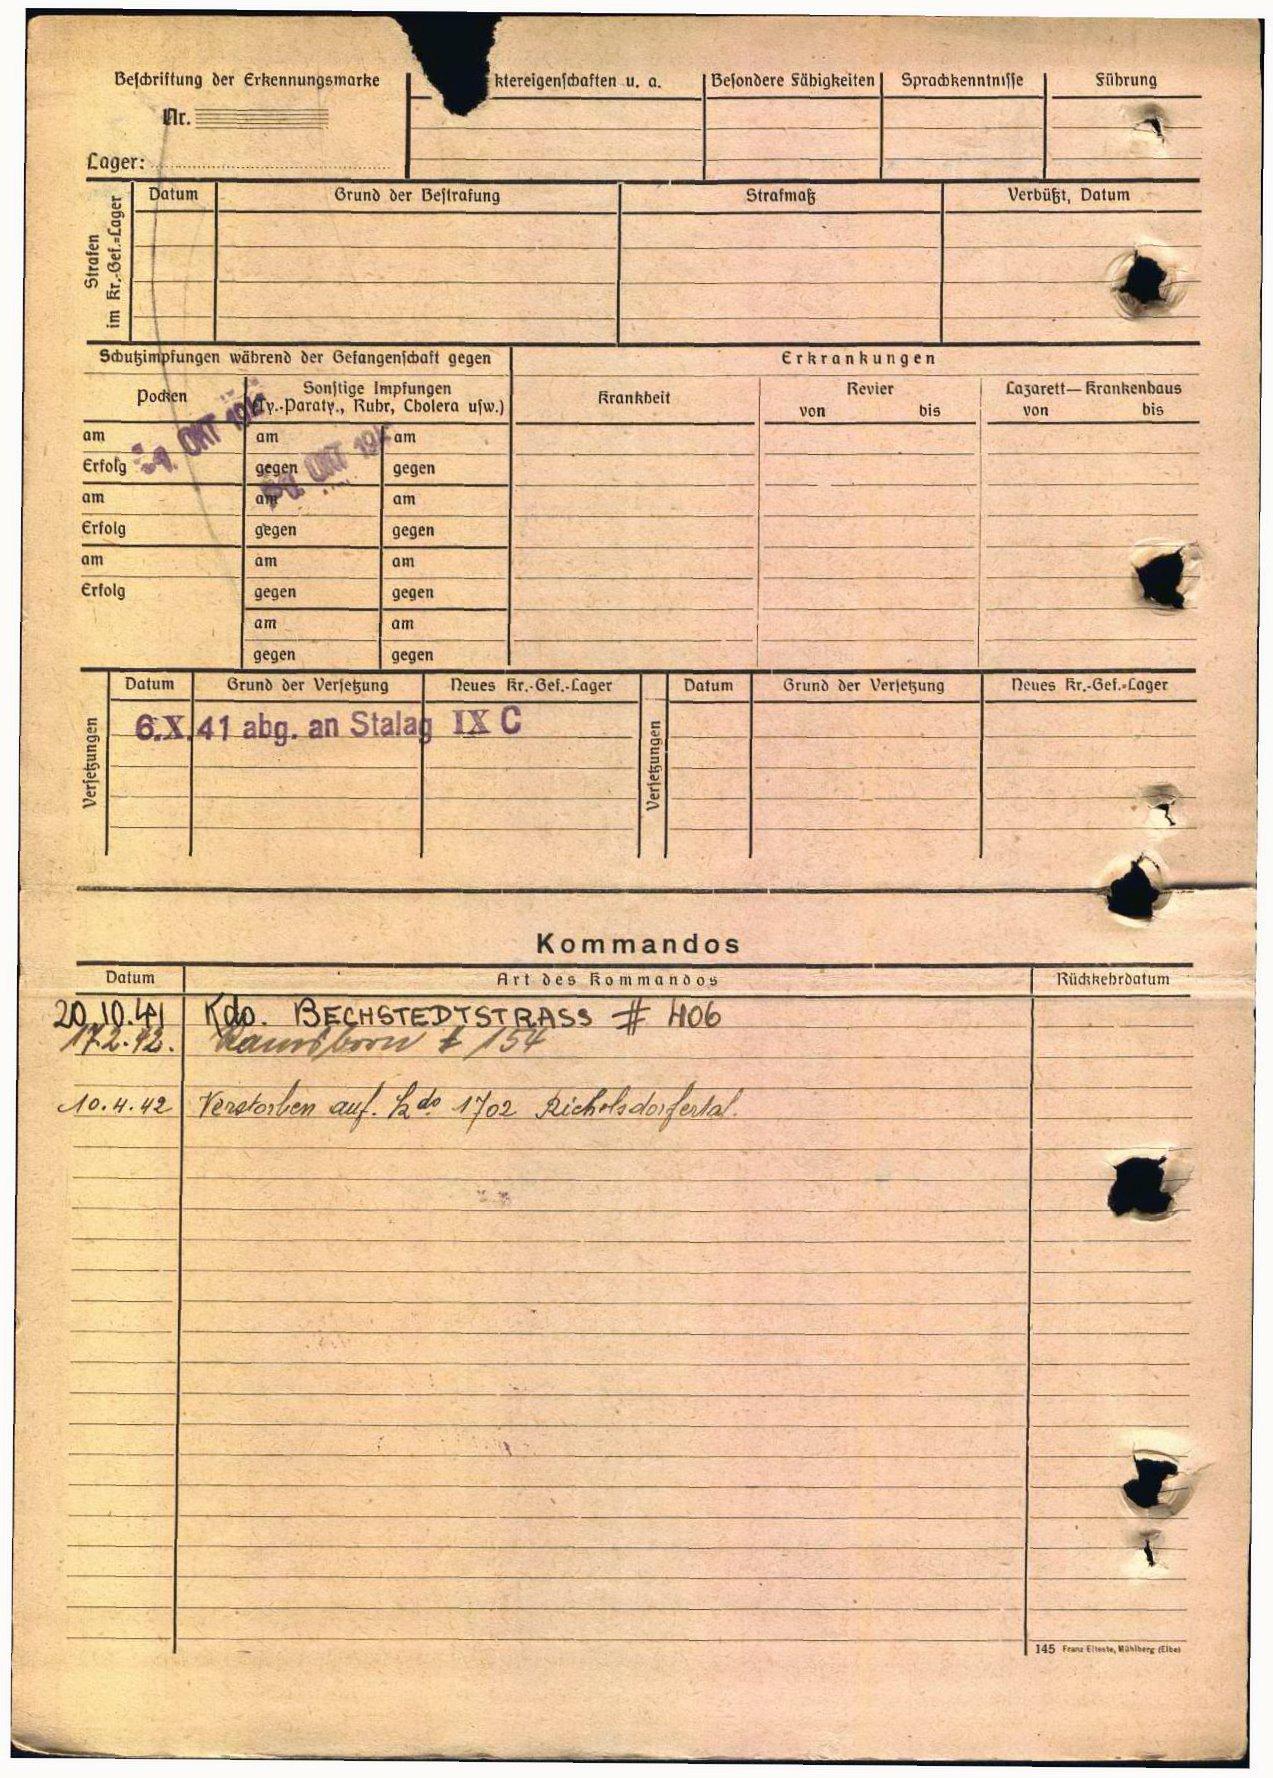 Beschriftung der Erkennungsmarke
ktereigenschaften u. a.
Besondere Fähigkeiten
Sprachkenntnisse
Führung
Nr.
Lager:
Strafen
im Kr.-Gef.=Lager
Datum
Grund der Bestrafung
Strafmaß
Verbüßt, Datum
Schutzimpfungen während der Gefangenschaft gegen
Erkrankungen
Pocken
Sonstige Impfungen
(Ty.-Paraty., Ruhr, Cholera usw.)
Krankheit
Revier
von bis
Lazarett — Krankenhaus
von bis
am am am
OKT
OKT
Erfolg gegen gegen
am am am
Erfolg gegen gegen
am am am
Erfolg gegen gegen
am am
gegen gegen
Versetzungen
Datum
Grund der Versetzung
Neues Kr.-Gef.-Lager
Versetzungen
Datum
Grund der Versetzung
Neues Kr.-Gef.=Lager
6.X.41 abg. an Stalag IX C
Kommandos
Datum
Art des Kommandos
Rückkehrdatum
20.10.41 Kdo. BECHSTEDTSTRASS # 406
17.2.42. # 154
10.4.42 Verstorben auf. Kdo 1702 Richelsdorfertal.
145 Franz Elteste, Mühlberg (Elbe)